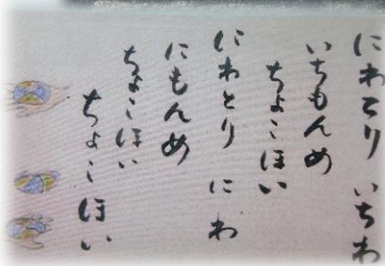 にわとり いちわ
いちもんめ
ちょこほい
にわとり にわ
にもんめ
ちょこほい
ちょこほい